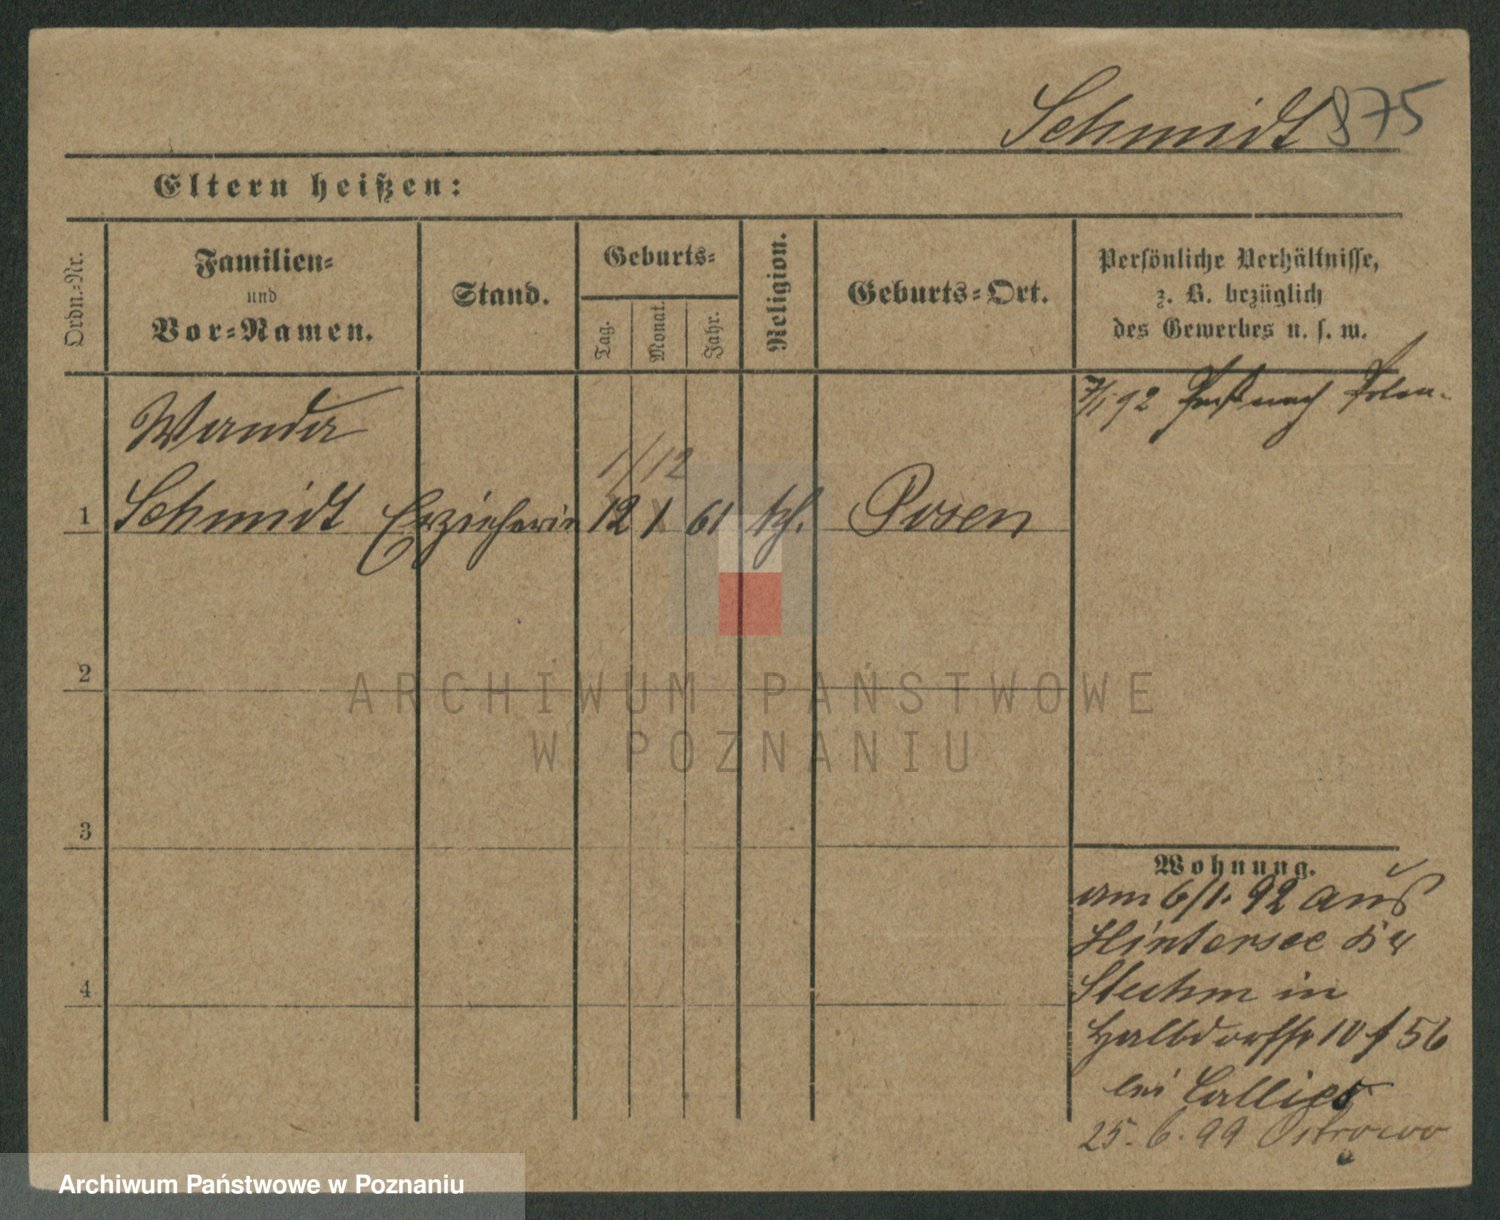 Schmidt 875
Eltern heißen:
Ordn.-Nr.
Familien-
und
Vor-Namen.
Stand.
Geburts-
Tag.
Monat.
Jahr.
Religion.
Geburts-Ort.
Persönliche Verhältnisse,
z. B. bezüglich
des Gewerbes u. s. w.
7/1 92 nach Polen.
Wanda
1/12
1 Schmidt Erzieherin 12 1 61 kth. Posen
2
3
4
Wohnung.
am 6/1. 92 aus
Hintersee
Stuhm in
Halbdorfstr 10 f 56
bei
25. 6. 99 Ostrowo
ARCHIWUM PAŃSTWOWE
W POZNANIU
Archiwum Państwowe w Poznaniu